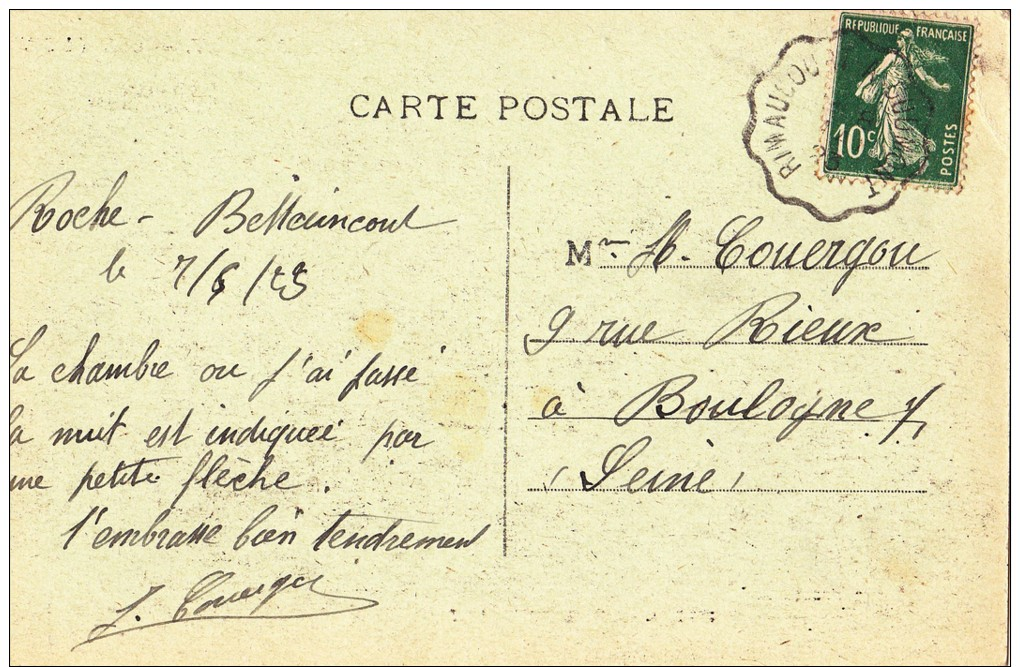 CARTE POSTALE
REPUBLIQUE FRANÇAISE
10c
POSTES
RIMAUCOU
Roche - Bettaincourt
le 7/6/23
La chambre ou j'ai passé
la nuit est indiqueé par
une petite flèche.
t'embrasse bien tendrement
J. Couergou
Mr H. Couergou
9 rue Rieux
à Boulogne s/
(Seine)